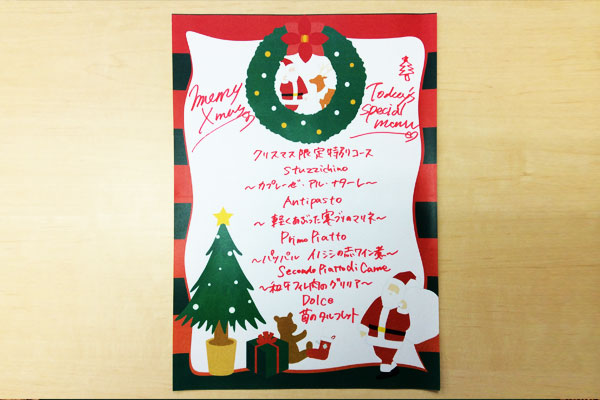 Merry
Xmas
Today's
Special
menu
クリスマス限定特別コース
Stuzzichino
〜カプレーゼ・アル・ナターレ〜
Antipasto
〜軽くあぶった寒ブリのマリネ〜
Primo Piatto
〜パッパル イノシシの赤ワイン煮〜
Secondo Piatto di Carne
〜和牛フィレ肉のグリリア〜
Dolce
苺のタルフレット